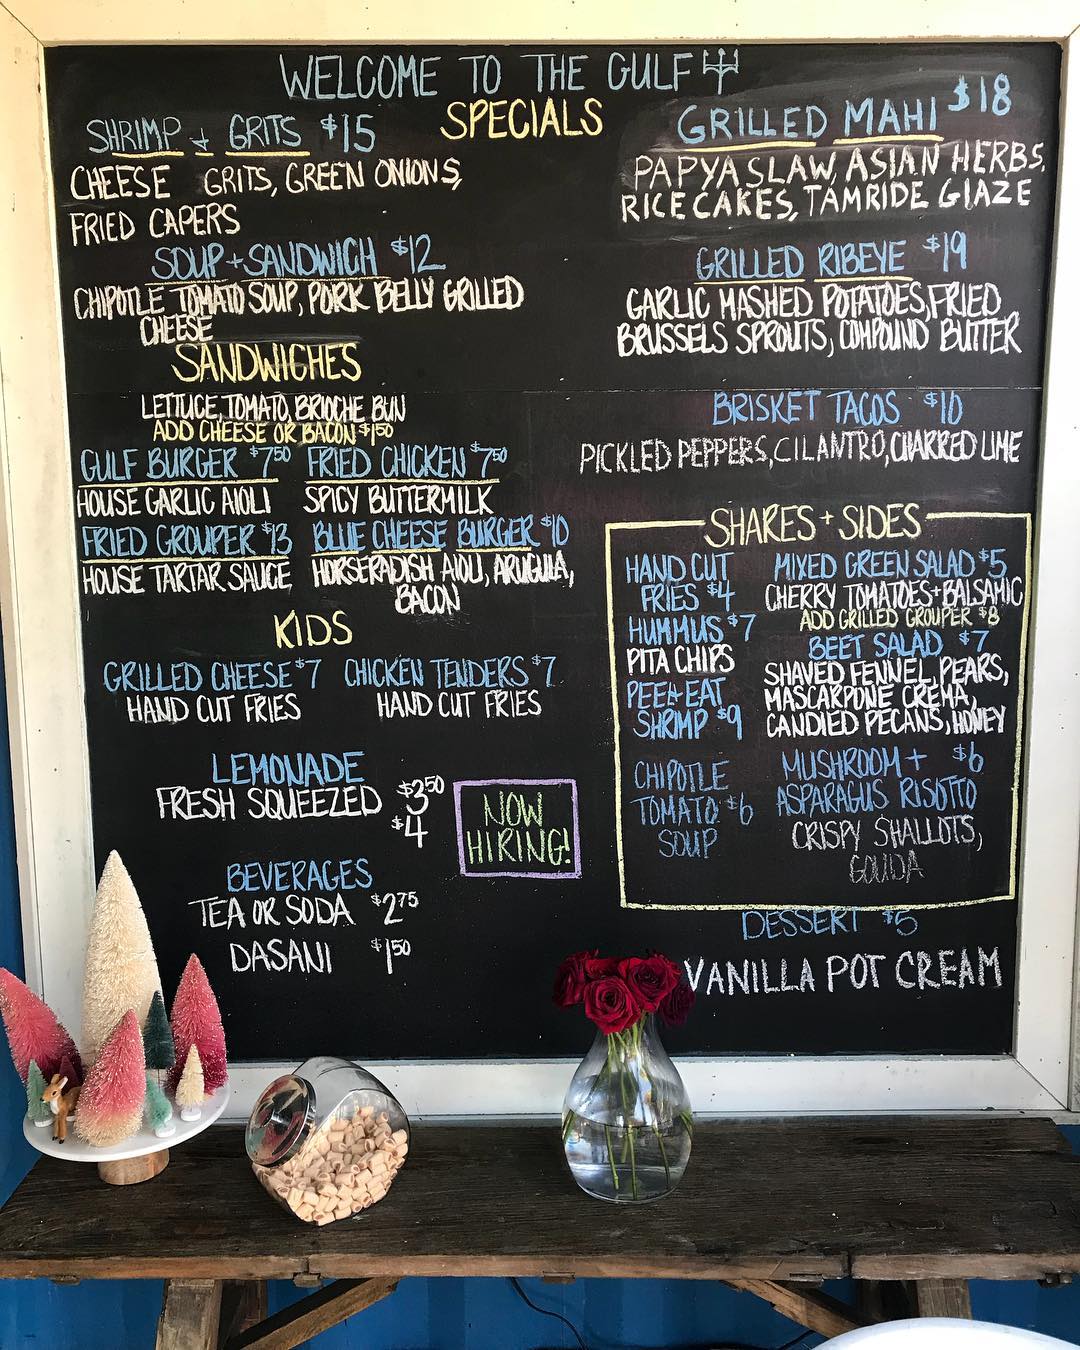 WELCOME TO THE GULF
SPECIALS
SHRIMP + GRITS $15
CHEESE GRITS, GREEN ONIONS,
FRIED CAPERS
SOUP + SANDWICH $12
CHIPOTLE TOMATO SOUP, PORK BELLY GRILLED
CHEESE
GRILLED MAHI $18
PAPYA SLAW, ASIAN HERBS,
RICE CAKES, TAMRIDE GLAZE
GRILLED RIBEYE $19
GARLIC MASHED POTATOES, FRIED
BRUSSELS SPROUTS, COMPOUND BUTTER
BRISKET TACOS $10
PICKLED PEPPERS, CILANTRO, CHARRED LIME
SANDWICHES
LETTUCE, TOMATO, BRIOCHE BUN
ADD CHEESE OR BACON $1.50
GULF BURGER $7.50 FRIED CHICKEN $7.50
HOUSE GARLIC AIOLI SPICY BUTTERMILK
FRIED GROUPER $13 BLUE CHEESE BURGER $10
HOUSE TARTAR SAUCE HORSERADISH AIOLI, ARUGULA,
BACON
KIDS
GRILLED CHEESE $7 CHICKEN TENDERS $7
HAND CUT FRIES HAND CUT FRIES
LEMONADE
FRESH SQUEEZED $3.50
$4
BEVERAGES
TEA OR SODA $2.75
DASANI $1.50
NOW
HIRING!
SHARES + SIDES
HAND CUT
FRIES $4
HUMMUS $7
PITA CHIPS
PEEL+EAT
SHRIMP $9
CHIPOTLE
TOMATO $6
SOUP
MIXED GREEN SALAD $5
CHERRY TOMATOES+BALSAMIC
ADD GRILLED GROUPER $8
BEET SALAD $7
SHAVED FENNEL, PEARS,
MASCARPONE CREMA,
CANDIED PECANS, HONEY
MUSHROOM + $6
ASPARAGUS RISOTTO
CRISPY SHALLOTS,
GOUDA
DESSERT $5
VANILLA POT CREAM